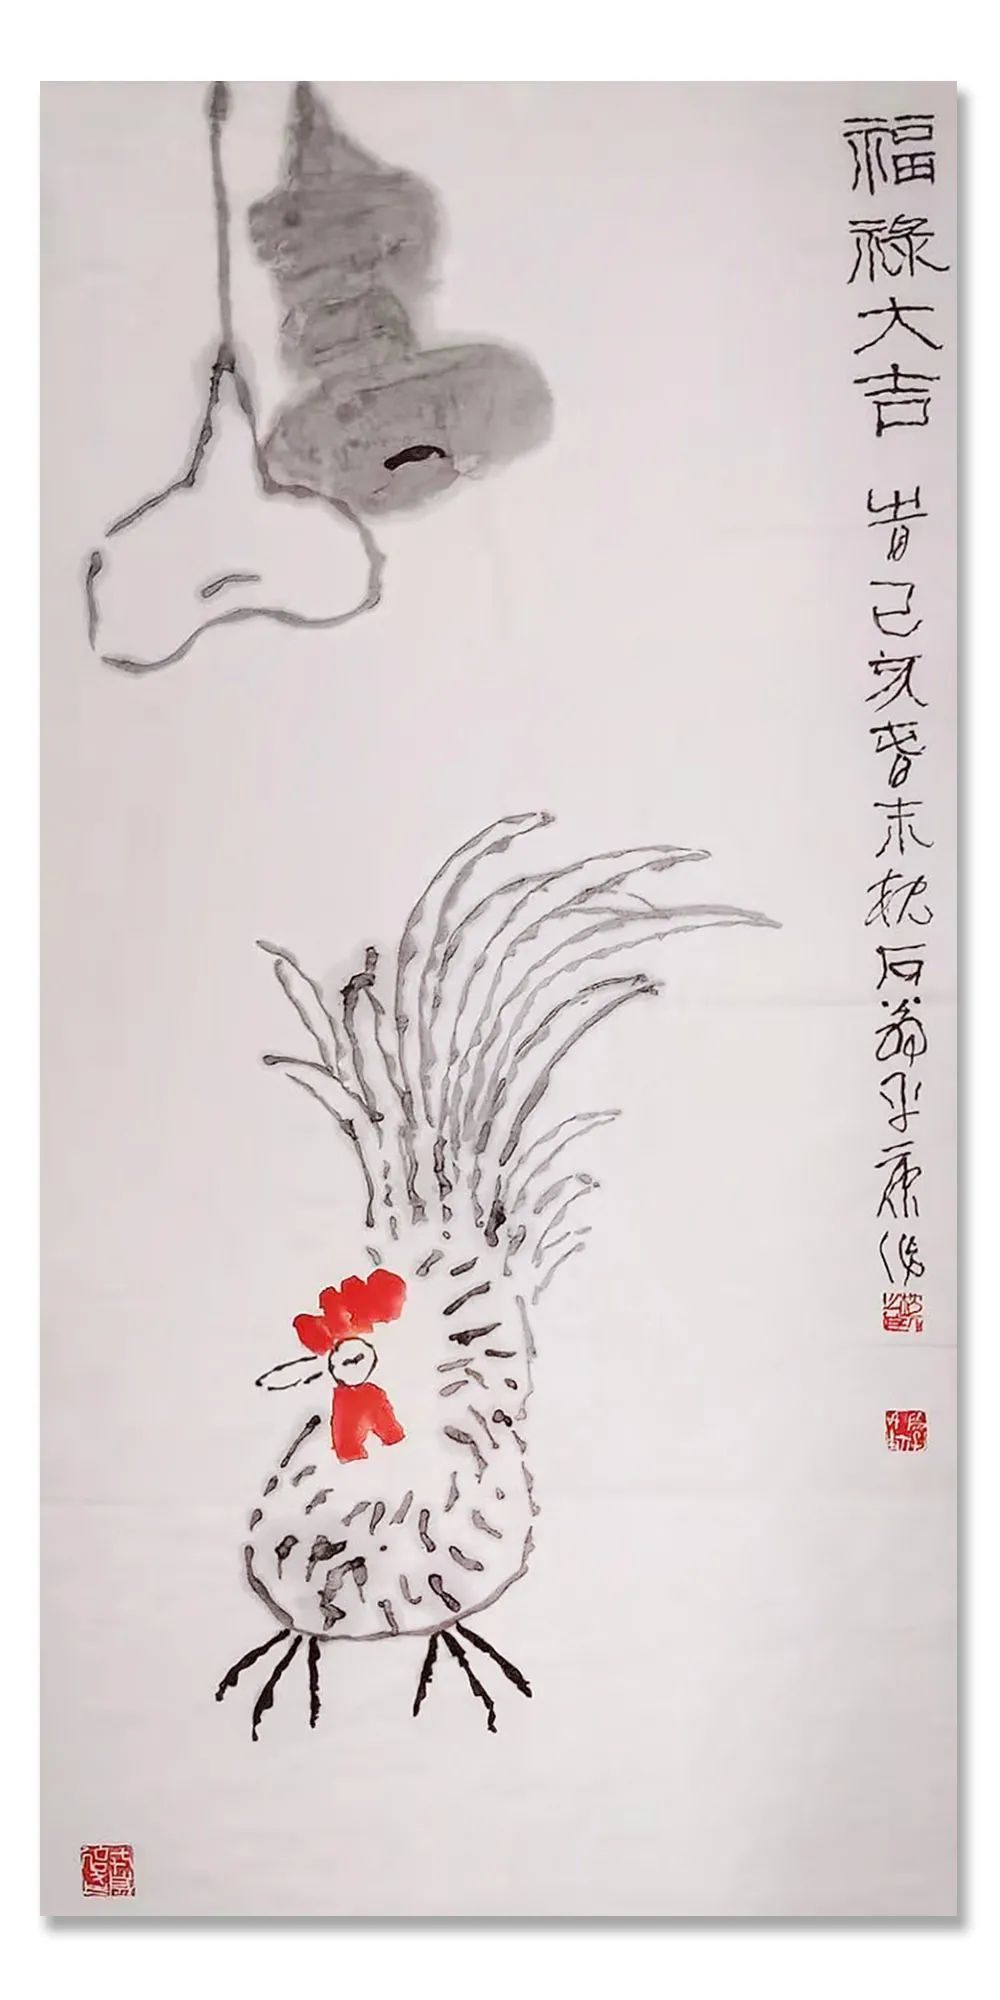 福祿大吉 時己亥春末枕石翁平康俊